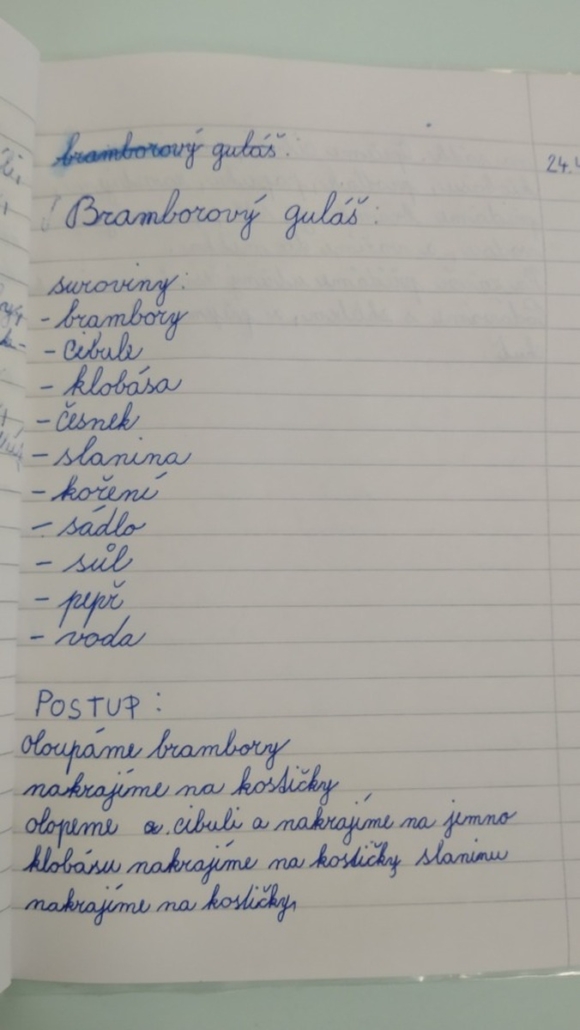 bramborový guláš.
24.
Bramborový guláš:
suroviny:
- brambory
- cibule
- klobása
- česnek
- slanina
- koření
- sádlo
- sůl
- pepř
- voda
POSTUP:
oloupáme brambory
nakrajíme na kostičky
olopeme a cibuli a nakrajíme na jemno
klobásu nakrajíme na kostičky slaninu
nakrajíme na kostičky,